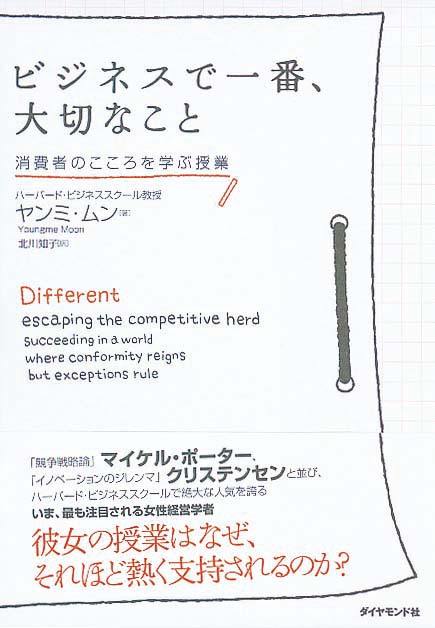 ビジネスで一番、
大切なこと
消費者のこころを学ぶ授業
ハーバード・ビジネススクール教授
ヤンミ・ムン[著]
Youngme Moon
北川知子[訳]
Different
escaping the competitive herd
succeeding in a world
where conformity reigns
but exceptions rule
「競争戦略論」マイケル・ポーター、
「イノベーションのジレンマ」クリステンセンと並び、
ハーバード・ビジネススクールで絶大な人気を誇る
いま、最も注目される女性経営学者
彼女の授業はなぜ、
それほど熱く支持されるのか?
ダイヤモンド社